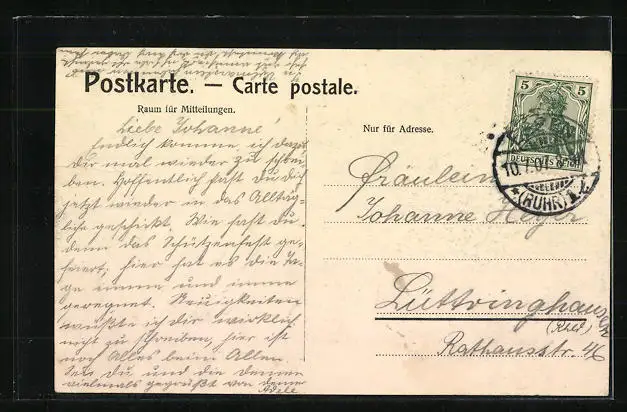 Postkarte. — Carte postale.
Raum für Mitteilungen.
Nur für Adresse.
Liebe Johanne!
Endlich komme ich dazu
Dir mal wieder zu schrei-
ben. Hoffentlich hast Du dich
jetzt wieder in das Alltäg-
liche geschickt. Wie hast du
denn das Schützenfest ge-
feiert; hier hat es die Ta-
ge immer und immer
geregnet. Neuigkeiten
wüßte ich dir wirklich
nicht zu schreiben, hier ist
noch Alles beim Alten.
Sei du und die Deinen
vielmals gegrüßt von deiner
Adele
5 5
DEUTSCHES REICH
10.7.07
*(RUHR)*
Fräulein
Johanne Heyer
Lüttringhausen
(Rhld)
Rathausstr. 46